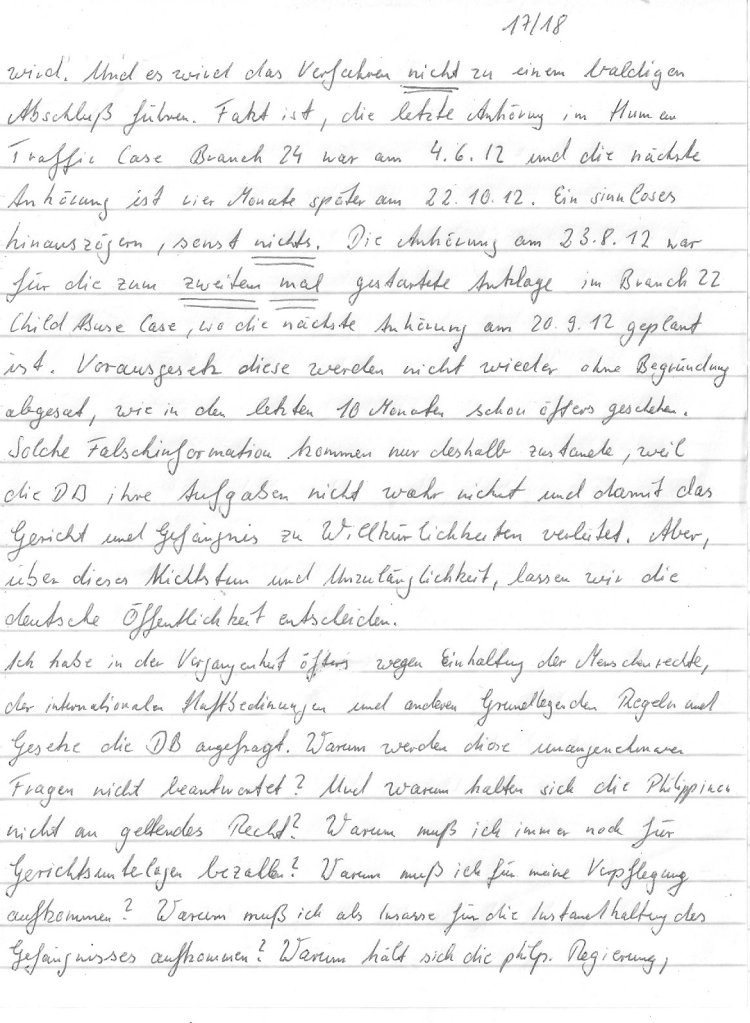 17/18
wird. Und es wird das Verfahren nicht zu einem baldigen
Abschluß führen. Fakt ist, die letzte Anhörung im Human
Traffic Case Branch 24 war am 4.6.12 und die nächste
Anhörung ist vier Monate später am 22.10.12. Ein sinnloses
hinauszögern, sonst nichts. Die Anhörung am 23.8.12 war
für die zum zweitem mal gestartete Anklage im Branch 22
Child Abuse Case, wo die nächste Anhörung am 20.9.12 geplant
ist. Vorausgesetz diese werden nicht wieder ohne Begründung
abgesat, wie in den letzten 10 Monaten schon öfters geschehen.
Solche Falschinformation kommen nur deshalb zustande, weil
die DB ihre Aufgaben nicht wahr nimmt und damit das
Gericht und Gefängnis zu Willkürlichkeiten verleitet. Aber,
über dieses Nichtstun und Unzulänglichkeit, lassen wir die
deutsche Öffentlichkeit entscheiden.
Ich habe in der Vergangenheit öfters wegen Einhaltung der Menschenrechte,
der internationalen Haftbedinungen und anderen Grundlegenden Regeln und
Gesetze die DB angefragt. Warum werden diese unangenehmen
Fragen nicht beantwortet? Und warum halten sich die Philippinen
nicht an geltendes Recht? Warum muß ich immer noch für
Gerichtsunterlagen bezahlen? Warum muß ich für meine Verpflegung
aufkommen? Warum muß ich als Insasse für die Instandhaltung des
Gefängnisses aufkommen? Warum hält sich die philp. Regierung,